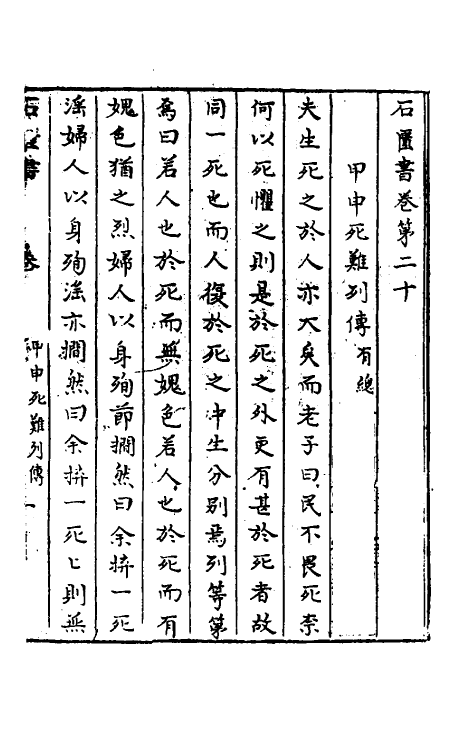 石匱書卷第二十
甲申死難列傳有總
夫生死之於人亦大矣而老子曰民不畏死柰
何以死懼之則是於死之外更有甚於死者故
同一死也而人復於死之中生分别焉列等第
焉曰若人也於死而無媿色若人也於死而有
媿色猶之烈婦人以身殉節撊然曰余拚一死
淫婦人以身殉淫亦撊然曰余拚一死〻則無
石匱書
卷
甲申死難列傳
一